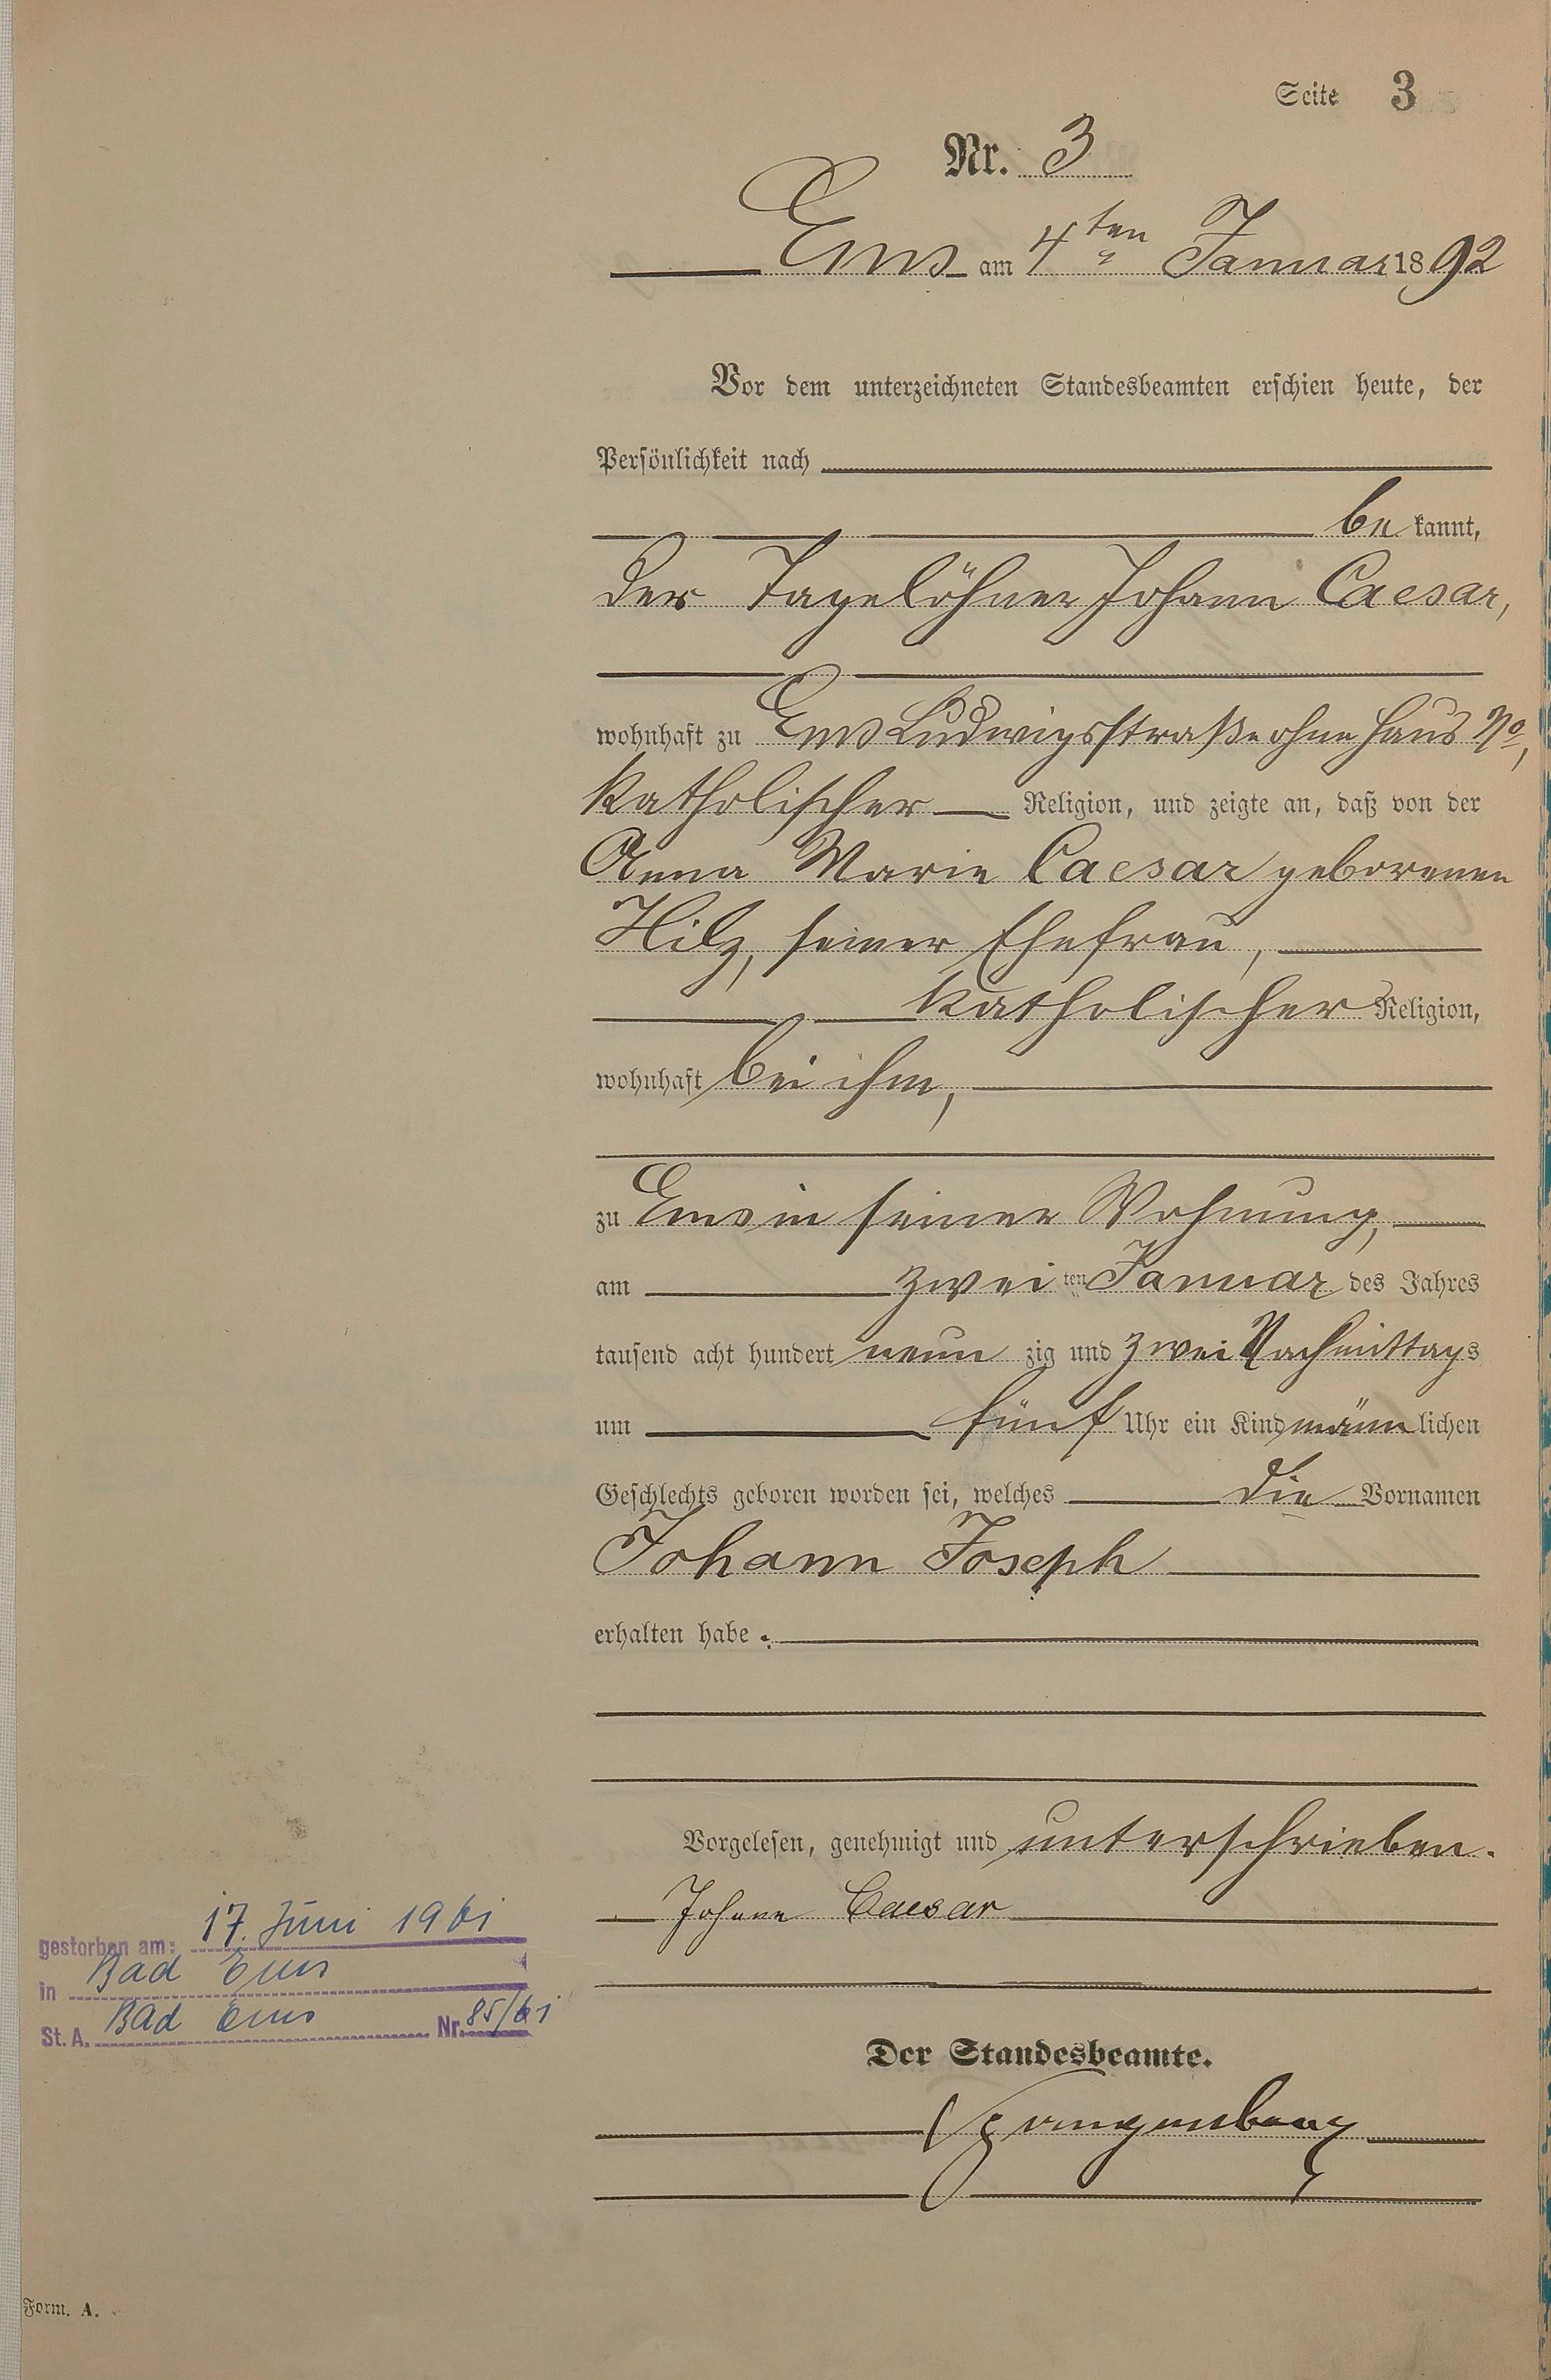 Seite 3
Nr. 3
Ems am 4ten Januar 1892
Vor dem unterzeichneten Standesbeamten erschien heute, der
Persönlichkeit nach
be kannt,
der Tagelöhner Johann Caesar,
wohnhaft zu Ems Ludwigsstraße ohne Haus No,
katholischer Religion, und zeigte an, daß von der
Anna Marie Caesar geborenen
Hilz, seiner Ehefrau,
katholischer Religion,
wohnhaft bei ihm,
zu Ems in seiner Wohnung,
am zwei ten Januar des Jahres
tausend acht hundert neun zig und zwei Nachmittags
um fünf Uhr ein Kind männ lichen
Geschlechts geboren worden sei, welches die Vornamen
Johann Joseph
erhalten habe.
Vorgelesen, genehmigt und unterschrieben.
Johann Caesar
gestorben am: 17. Juni 1961
in Bad Ems
St. A. Bad Ems Nr. 85/61
Der Standesbeamte.
Form. A.